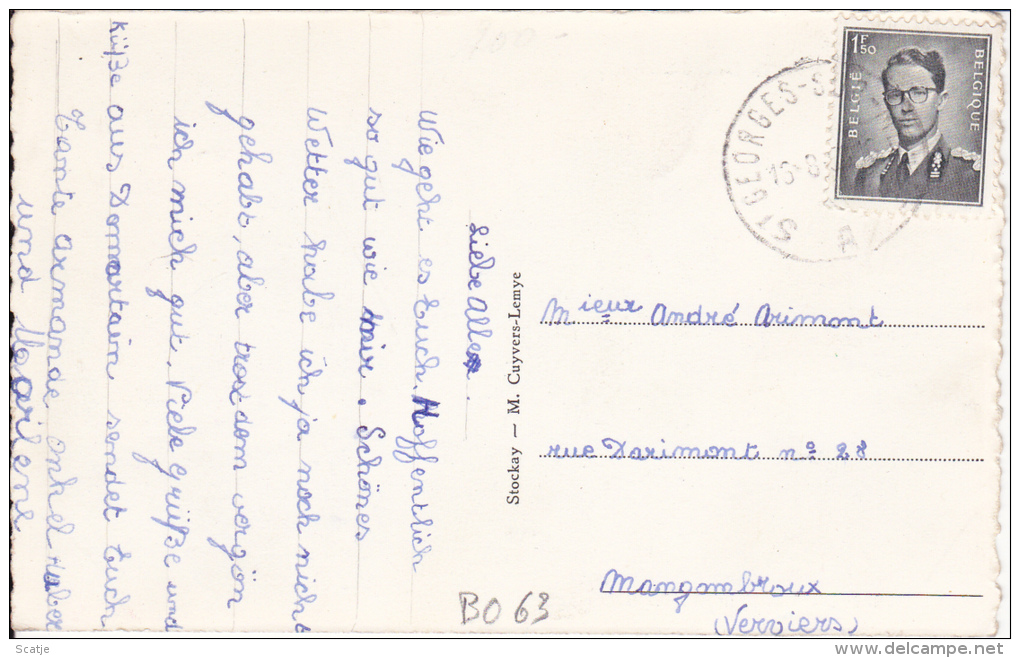 Liebe Alle.
Wie geht es Euch. Hoffentlich
so gut wie mir. Schönes
Wetter habe ich ja noch nicht
gehabt, aber trozdom vergön
ich mich gut. Viele grüße und
Küße aus Dommartain sendet Euch
Tante armande onkel Huber
und Marilene
Stockay — M. Cuyvers-Lemye
1F50
BELGIË
BELGIQUE
ST GEORGES-S
A
Mieur André Arimont
rue Darimont no 28
Mangombroux
(Verviers)
BO 63
delcampe.net
Scatje